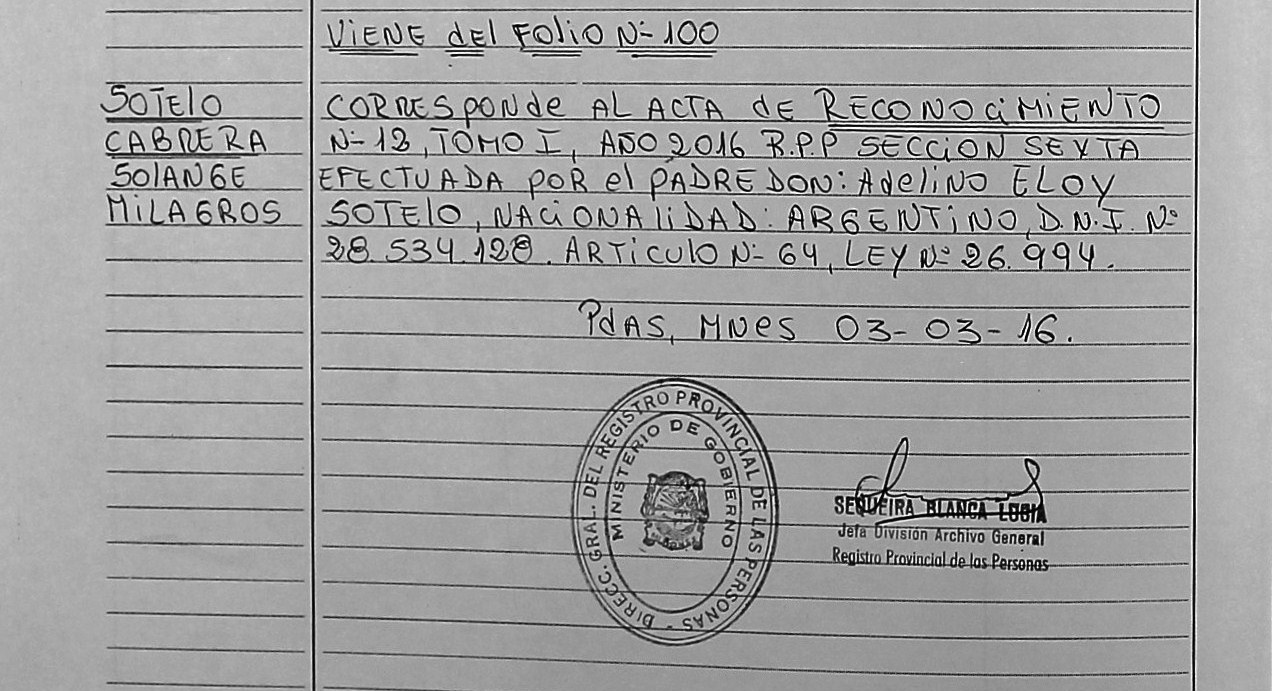 VIENE del FOLIO Nº 100
SOTELO
CABRERA
SOLANGE
MILAGROS
CORRESponde AL ACTA de RECONOCiMIENTO
Nº 12, TOMO I, AÑO 2016 R.P.P SECCION SEXTA
EFECTUADA POR el PADRE DON: Adelino ELOY
SOTELO, NACiONAliDAD: ARGENTINO, D.N.I. Nº
28.534.128. ARTiCulO Nº 64, LEY Nº 26.994.
PdAS, MNes 03-03-16.
DIRECC. GRAL. DEL REGISTRO PROVINCIAL DE LAS PERSONAS -
MINISTERIO DE GOBIERNO
SEQUEIRA BLANCA LUCIA
Jefa División Archivo General
Registro Provincial de las Personas